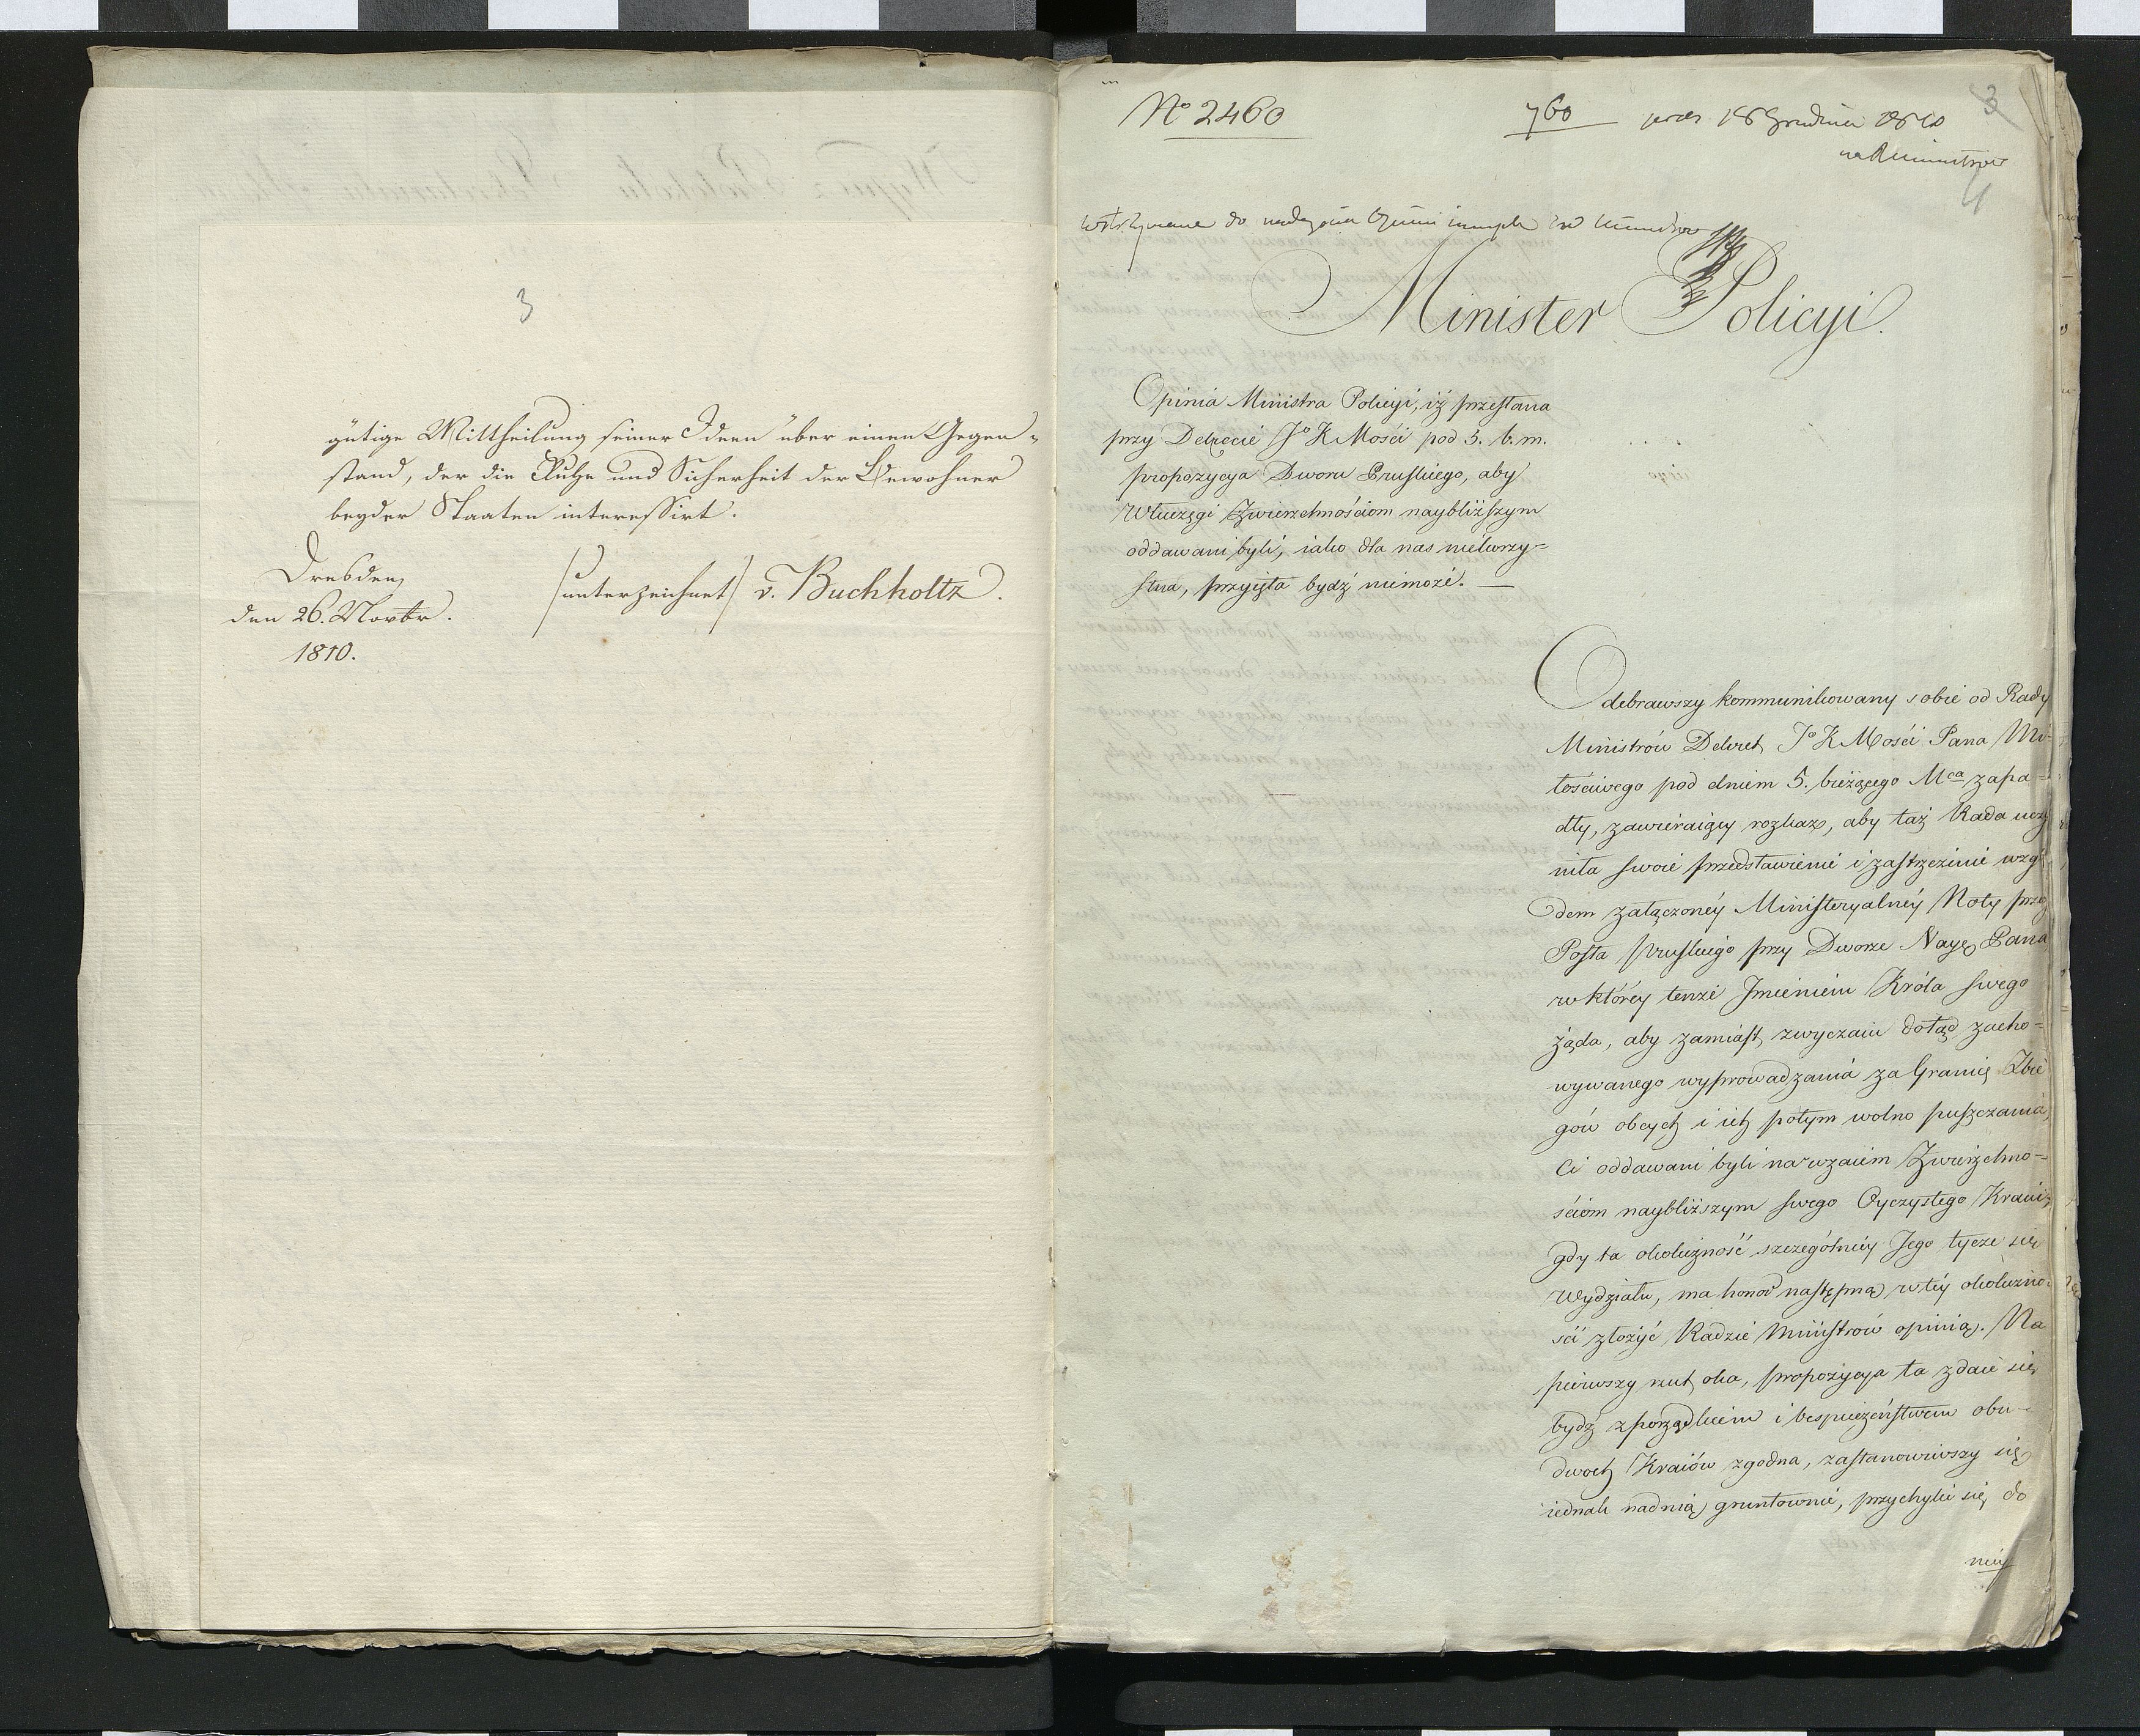 3
gütige Mittheilung seiner Ideen über einen Gegen-
stand, der die Ruhe und Sicherheit der Bewohner
beyder Staaten interessirt.
Dresden,
den 26. Novbr.
1810.
/unterzeichnet/ v. Buchholtz.
No 2460
760
18 Grudnia 1810
3
4
do
Minister Policyi.
Opinia Ministra Policyi, iż przesłana
przy Dekrecie Jo K Mości pod 5. b. m.
propozycya Dworu Pruskiego, aby
Włuczęgi Zwierzchnościom naybliższym
oddawani byli, iako dla nas niekorzy-
stna, przyięta bydź niemoże. —
Odebrawszy kommunikowany sobie od Rady
Ministrów Dekret Jo K Mości Pana Mi-
łościwego pod dniem 5. bieżącego Mca zapa-
dły, zawieraiący rozkaz, aby taż Rada uczy
niła swoie przedstawienie i zastrzeżenie wzglę
dem załączonéy Ministeryalnéy Noty przez
Posła Pruskiego przy Dworze Nayę Pana
w któréy tenże Jmieniem Króla swego
żąda, aby zamiast zwyczaiu dotąd zacho-
wywanego wyprowadzania za Granicę Zbie
gów obcych i ich potym wolno puszczania,
Ci oddawani byli nawzaiem Zwierzchno-
ściom naybliższym swego Oyczystego Kraiu,
gdy ta okoliczność szczególniéy Jego tycze się
Wydziału, ma honor następną w téy okoliczno-
ści złożyć Radzie Ministrów opinią. Na
pierwszy rzut oka, propozycya ta zdaie się
bydź z porządkiem i bespieczeństwem obu-
dwoch Kraiów zgodna, zastanowiwszy się
iednak nad nią gruntownie, przychylić się do
niéy